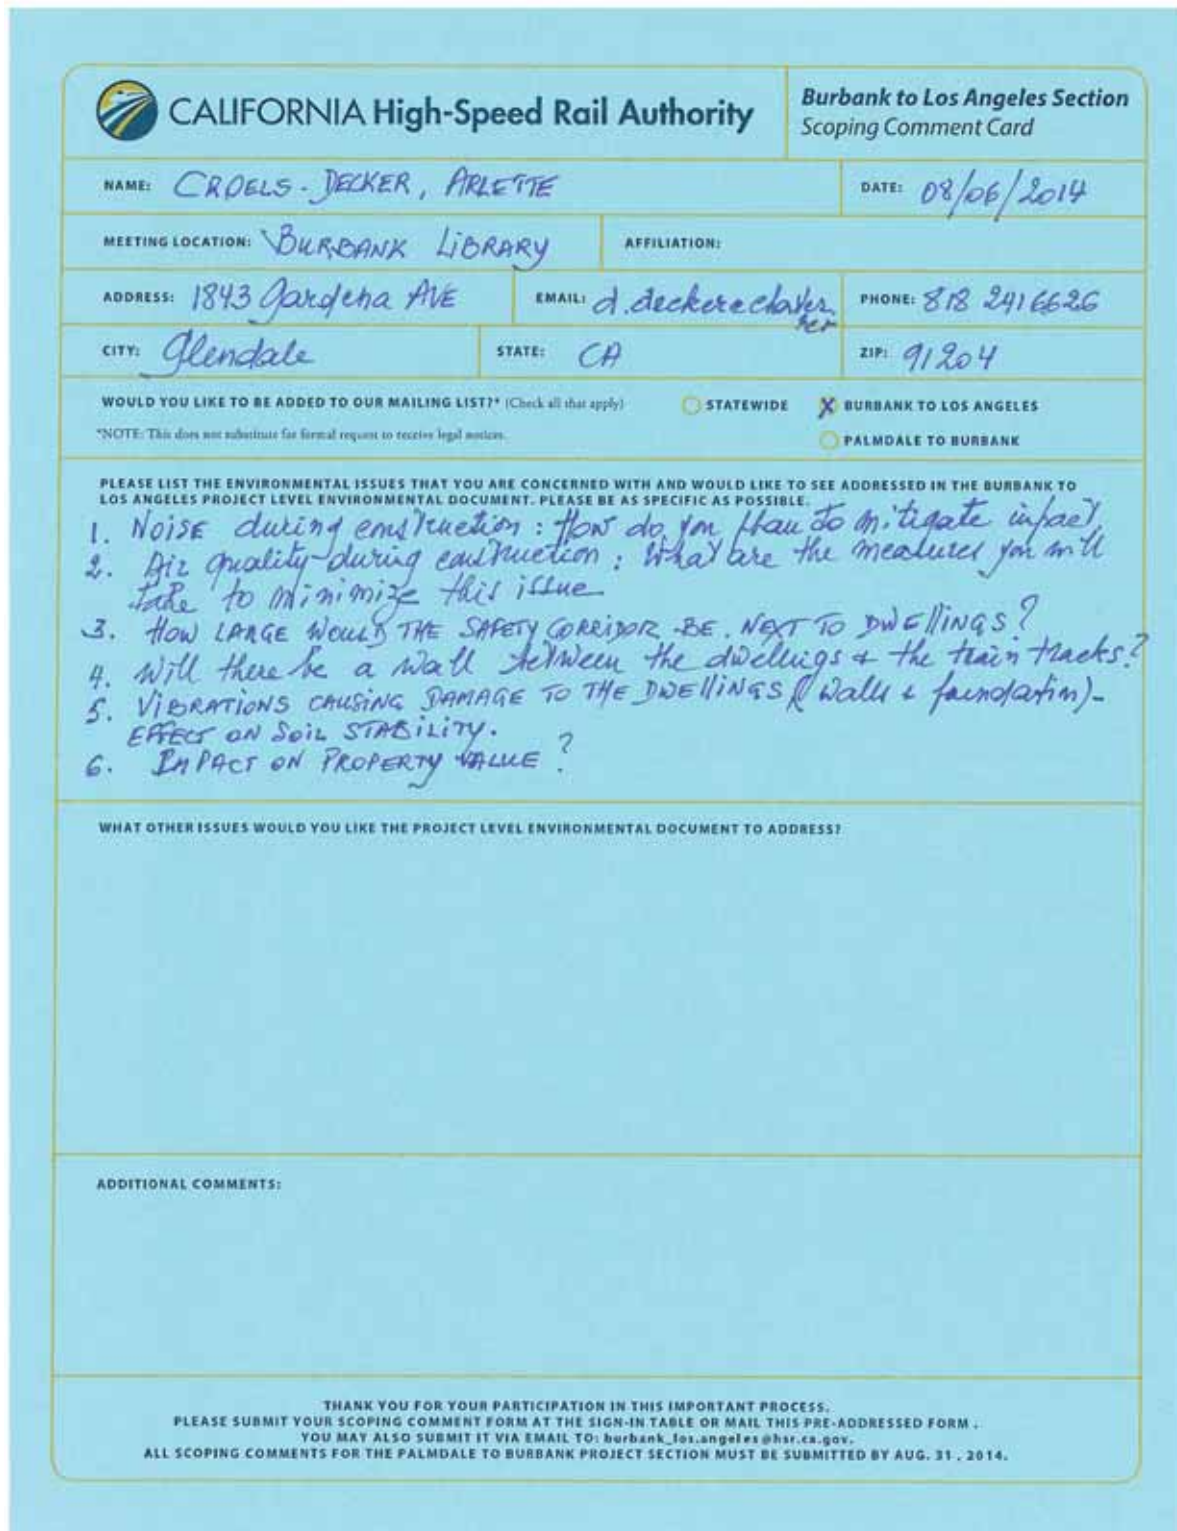 CALIFORNIA High-Speed Rail Authority
Burbank to Los Angeles Section
Scoping Comment Card
NAME: CROELS-DECKER, ARLETTE
DATE: 08/06/2014
MEETING LOCATION: BURBANK LIBRARY
AFFILIATION:
ADDRESS: 1843 Gardena AVE
EMAIL: d.decker
PHONE: 818 2416626
CITY: Glendale
STATE: CA
ZIP: 91204
WOULD YOU LIKE TO BE ADDED TO OUR MAILING LIST?* (Check all that apply)
STATEWIDE
X BURBANK TO LOS ANGELES
*NOTE: This does not substitute for formal request to receive legal notices.
PALMDALE TO BURBANK
PLEASE LIST THE ENVIRONMENTAL ISSUES THAT YOU ARE CONCERNED WITH AND WOULD LIKE TO SEE ADDRESSED IN THE BURBANK TO
LOS ANGELES PROJECT LEVEL ENVIRONMENTAL DOCUMENT. PLEASE BE AS SPECIFIC AS POSSIBLE.
1. Noise during construction: How do you plan to mitigate impact.
2. Air quality during construction: What are the measures you will
take to minimize this issue
3. HOW LARGE WOULD THE SAFETY CORRIDOR BE NEXT TO DWELLINGS?
4. Will there be a wall between the dwellings & the train tracks?
5. VIBRATIONS CAUSING DAMAGE TO THE DWELLINGS (walls & foundation)-
EFFECT ON SOIL STABILITY.
6. IMPACT ON PROPERTY VALUE?
WHAT OTHER ISSUES WOULD YOU LIKE THE PROJECT LEVEL ENVIRONMENTAL DOCUMENT TO ADDRESS?
ADDITIONAL COMMENTS:
THANK YOU FOR YOUR PARTICIPATION IN THIS IMPORTANT PROCESS.
PLEASE SUBMIT YOUR SCOPING COMMENT FORM AT THE SIGN-IN TABLE OR MAIL THIS PRE-ADDRESSED FORM .
YOU MAY ALSO SUBMIT IT VIA EMAIL TO: burbank_los.angeles@hsr.ca.gov.
ALL SCOPING COMMENTS FOR THE PALMDALE TO BURBANK PROJECT SECTION MUST BE SUBMITTED BY AUG. 31 , 2014.